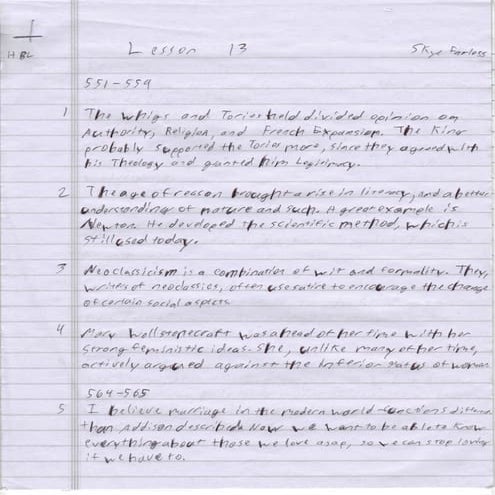 HBL
Lesson 13
Skye
551-559
1 The Whigs and Tories held divided opinion on
Authority, Religion, and French Expansion. The King
probably supported the Tories more, since they agreed with
his Theology and granted him Legitimacy.
2 The age of reason brought a rise in literacy, and a better
understanding of nature and such. A great example is
Newton. He developed the scientific method, which is
still used today.
3 Neoclassicism is a combination of wit and formality. They,
writers of neoclassics, often use satire to encourage the change
of certain social aspects.
4 Mary Wollstonecraft was ahead of her time with her
strong feministic ideas. She, unlike many of her time,
actively argued against the inferior status of woman
564-565
5 I believe marriage in the modern world functions different
than Addison described. Now we want to be able to know
everything about those we love asap, so we can stop loving
if we have to.